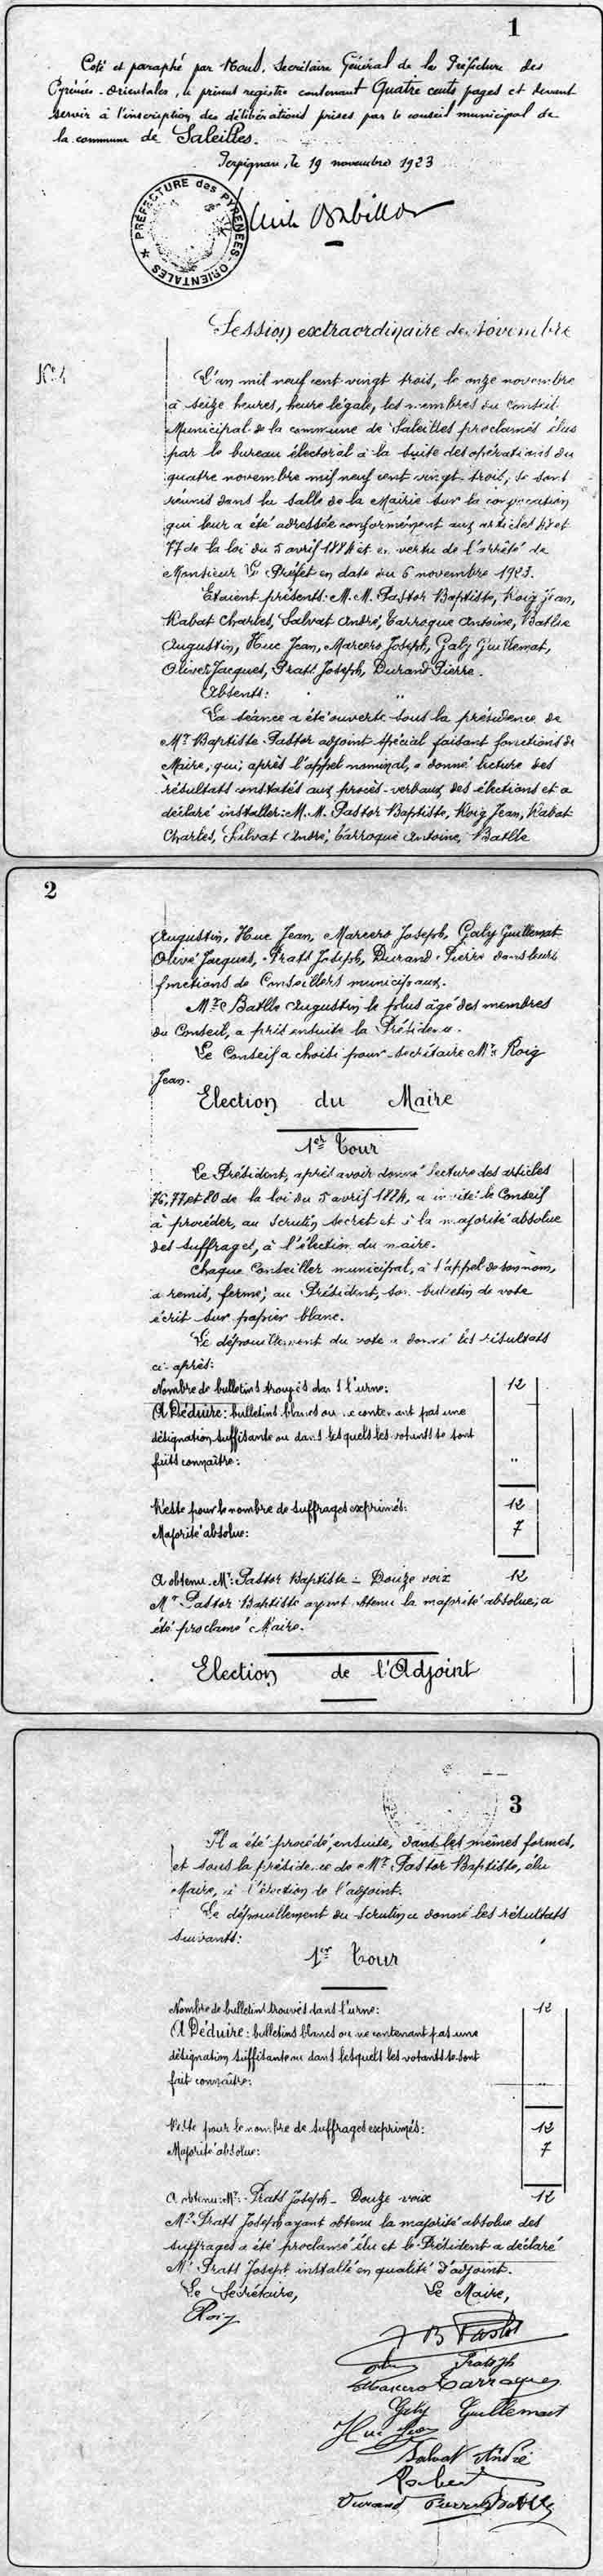 1
Coté et paraphé par Nous, Secrétaire Général de la Préfecture des
Pyrénées-Orientales, le présent registre contenant Quatre cents pages et devant
servir à l'inscription des délibérations prises par le conseil municipal de
la commune de Saleilles.
Perpignan, le 19 novembre 1923
PRÉFECTURE des PYRENEES-ORIENTALES
Session extraordinaire de Novembre
N° 1
L'an mil neuf cent vingt trois, le onze novembre
à seize heures, heure légale, les membres du Conseil
Municipal de la commune de Saleilles proclamés élus
par le bureau électoral à la suite des opérations du
quatre novembre mil neuf cent vingt trois, se sont
réunis dans la salle de la Mairie sur la convocation
qui leur a été adressée conformément aux articles 48 et
77 de la loi du 5 avril 1884 et en vertu de l'arrêté de
Monsieur le Préfet en date du 6 novembre 1923.
Etaient présents: M.M. Pastor Baptiste, Roig Jean,
Rabat Charles, Salvat André, Carroque Antoine, Batlle
Augustin, Huc Jean, Marcero Joseph, Galy Guillemat,
Olive Jacques, Prats Joseph, Durand Pierre.
Absents: "
La séance a été ouverte sous la présidence de
Mr Baptiste Pastor adjoint spécial faisant fonctions de
Maire, qui, après l'appel nominal, a donné lecture des
résultats constatés aux procès-verbaux des élections et a
déclaré installer: M.M. Pastor Baptiste, Roig Jean, Rabat
Charles, Salvat André, Carroque Antoine, Batlle
2
Augustin, Huc Jean, Marcero Joseph, Galy Guillemat
Olive Jacques, Prats Joseph, Durand Pierre dans leurs
fonctions de Conseillers municipaux.
Mr Batlle Augustin le plus âgé des membres
du Conseil, a pris ensuite la Présidence.
Le Conseil a choisi pour secrétaire Mr Roig
Jean.
Election du Maire
1er Tour
Le Président, après avoir donné lecture des articles
76, 77 et 80 de la loi du 5 avril 1884, a invité le Conseil
à procéder, au scrutin secret et à la majorité absolue
des suffrages, à l'élection du maire.
Chaque Conseiller municipal, à l'appel de son nom,
a remis, fermé, au Président, son bulletin de vote
écrit sur papier blanc.
Le dépouillement du vote a donné les résultats
ci-après:
Nombre de bulletins trouvés dans l'urne: 12
A Déduire: bulletins blancs ou ne contenant pas une
désignation suffisante ou dans lesquels les votants se sont
faits connaître: "
Reste pour le nombre de suffrages exprimés: 12
Majorité absolue: 7
A obtenu Mr: Pastor Baptiste - Douze voix 12
Mr Pastor Baptiste ayant obtenu la majorité absolue, a
été proclamé Maire.
Election de l'Adjoint
3
Il a été procédé, ensuite, dans les mêmes formes,
et sous la présidence de Mr Pastor Baptiste, élu
Maire, à l'élection de l'adjoint.
Le dépouillement du scrutin a donné les résultats
suivants:
1er Tour
Nombre de bulletins trouvés dans l'urne: 12
A Déduire: bulletins blancs ou ne contenant pas une
désignation suffisante ou dans lesquels les votants se sont
fait connaître:
Reste pour le nombre de suffrages exprimés: 12
Majorité absolue: 7
A obtenu: Mr: Prats Joseph - Douze voix 12
Mr Prats Joseph ayant obtenu la majorité absolue des
suffrages a été proclamé élu et le Président a déclaré
Mr Prats Joseph installé en qualité d'adjoint.
Le Secrétaire, Le Maire,
Roig
B Pastor
Prats Jh
Marcero Carroque
Galy Guillemat
Huc Jean
Salvat André
Durand Pierre Batlle